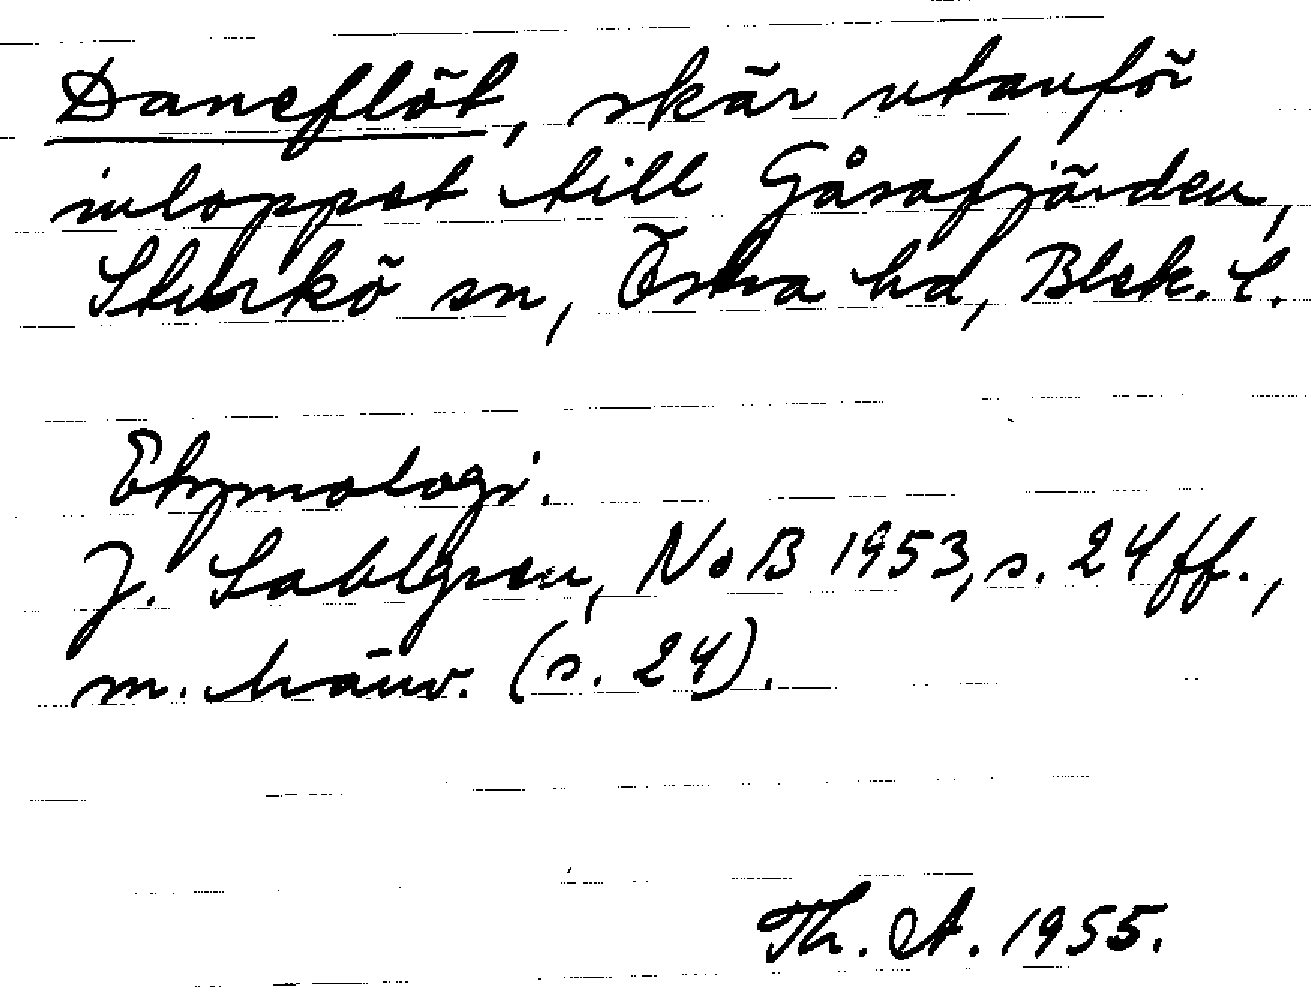 Daneflöt, skär utanför
inloppet till Gåsafjärden,
Sturkö sn, Östra hd, Blek. l.
Etymologi.
J. Sahlgren, NoB 1953, s. 24 ff.,
m. hänv. (s. 24).
Th. A. 1955.